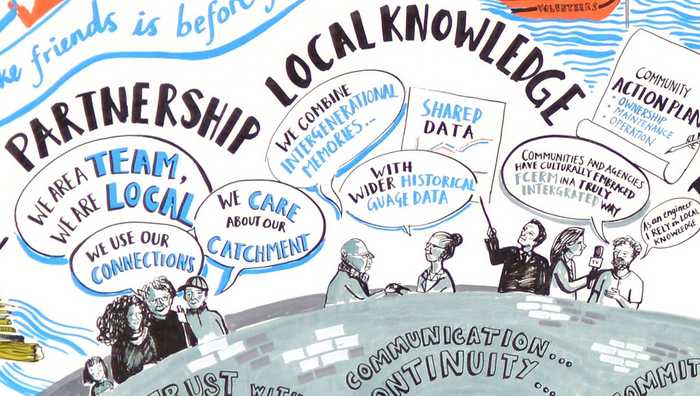 ke friends is before y
VOLUNTEERS
PARTNERSHIP
LOCAL KNOWLEDGE
WE ARE A TEAM,
WE ARE LOCAL
WE USE OUR
CONNECTIONS
WE CARE
ABOUT OUR
CATCHMENT
WE COMBINE
INTERGENERATIONAL
MEMORIES...
SHARED
DATA
WITH
WIDER HISTORICAL
GUAGE DATA
COMMUNITIES AND AGENCIES
HAVE CULTURALLY EMBRACED
FCERM IN A TRULY
INTERGRATED WAY
COMMUNITY
ACTION PLAN
• OWNERSHIP
• MAINTENANCE
• OPERATION
As an engineer
I RELY on LOCAL
KNOWLEDGE
TRUST WITH
COMMUNICATION...
CONTINUITY...
COMMIT